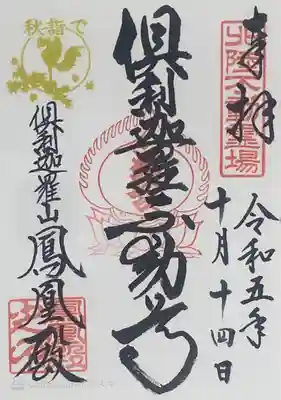 奉拝
令和五年
十月十四日
倶利迦羅不動尊
倶利迦羅山
鳳凰殿
秋詣で